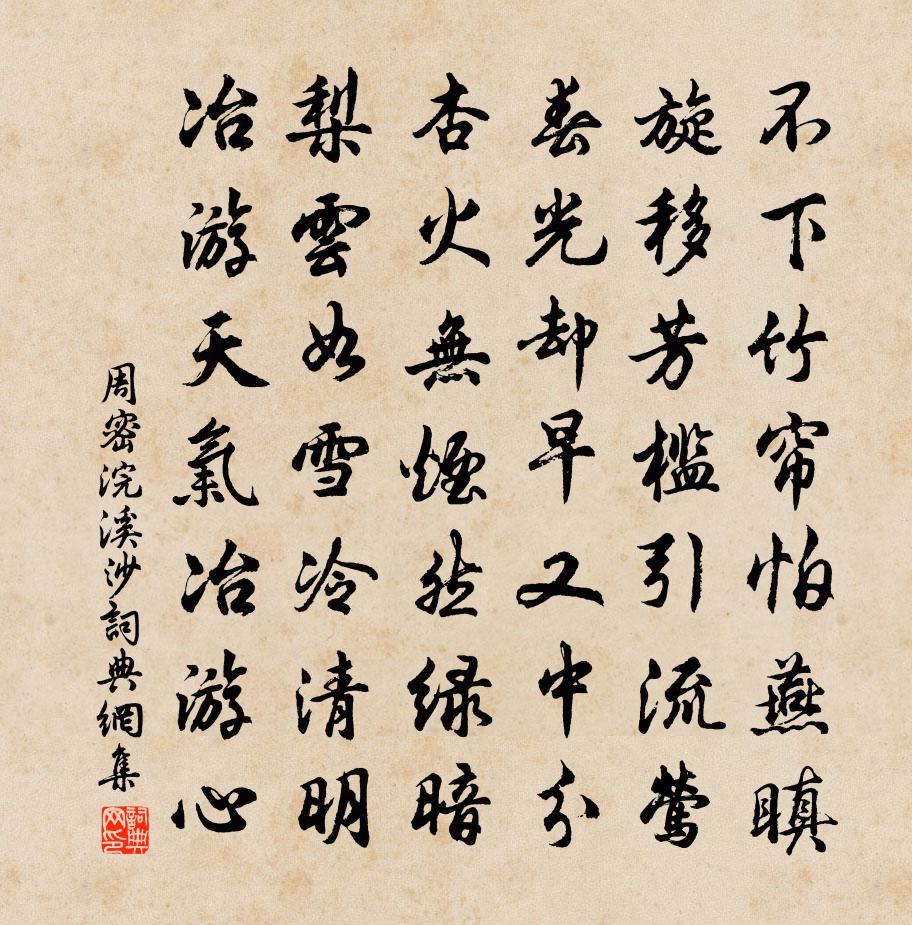 不下竹帘怕燕瞋
旋移芳槛引流莺
春光却早又中分
杏火無煙然绿暗
梨雲如雪冷清明
冶游天氣冶游心
周密浣溪沙詞典網集
詞典网印